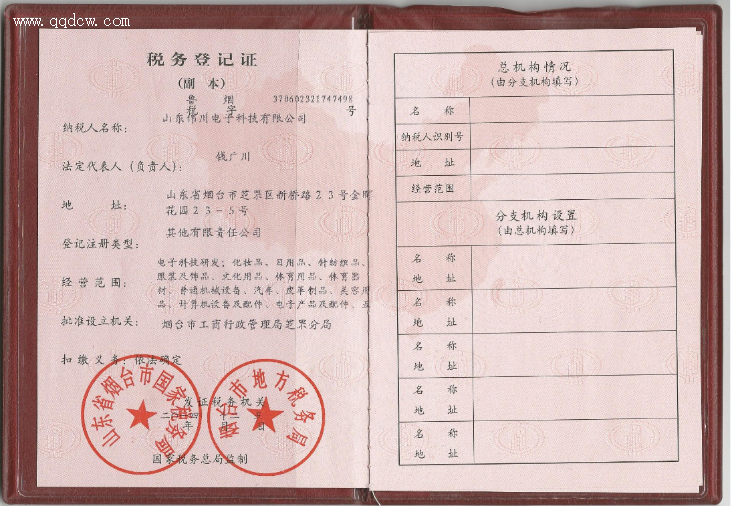 www.qqdcw.com
税务登记证
(副 本)
鲁 烟
税 字 370602321747498 号
纳税人名称: 山东伟川电子科技有限公司
法定代表人(负责人): 钱广川
地 址: 山东省烟台市芝罘区新桥路23号金
花园23-5号
登记注册类型: 其他有限责任公司
经营范围: 电子科技研发;化妆品、日用品、针纺织品、
服装及饰品、文化用品、体育用品、体育器
材、普通机械设备、汽车、皮革制品、美容用
品、计算机设备及配件、电子产品及配件、五
批准设立机关: 烟台市工商行政管理局芝罘分局
扣缴义务: 依法确定
山东省烟台市国家税务局
烟台市地方税务局
发证税务机关
二〇一四年十二月 日
国家税务总局监制
总机构情况
(由分支机构填写)
名 称
纳税人识别号
地 址
经营范围
分支机构设置
(由总机构填写)
名 称
地 址
名 称
地 址
名 称
地 址
名 称
地 址
名 称
地 址